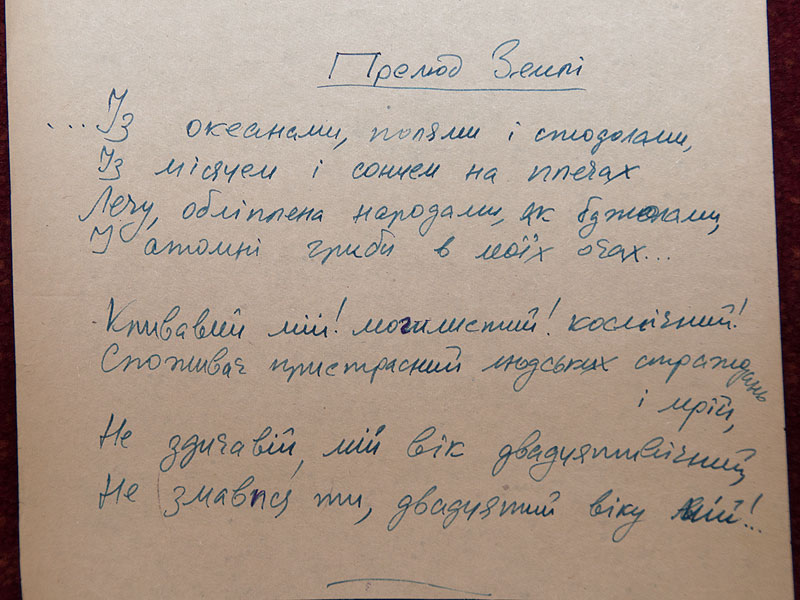 Прелюд Землі
...Із океанами, полями і стодолами,
Із місяцем і сонцем на плечах
Лечу, обліплена народами, як бджолами,
І атомні гриби в моїх очах...
Кривавий мій! могилистий! космічний!
Споживач пристрасний людських страждань
і мрій,
Не здичавій, мій вік двадцятивічний,
Не змавпся ти, двадцятий віку мій!..